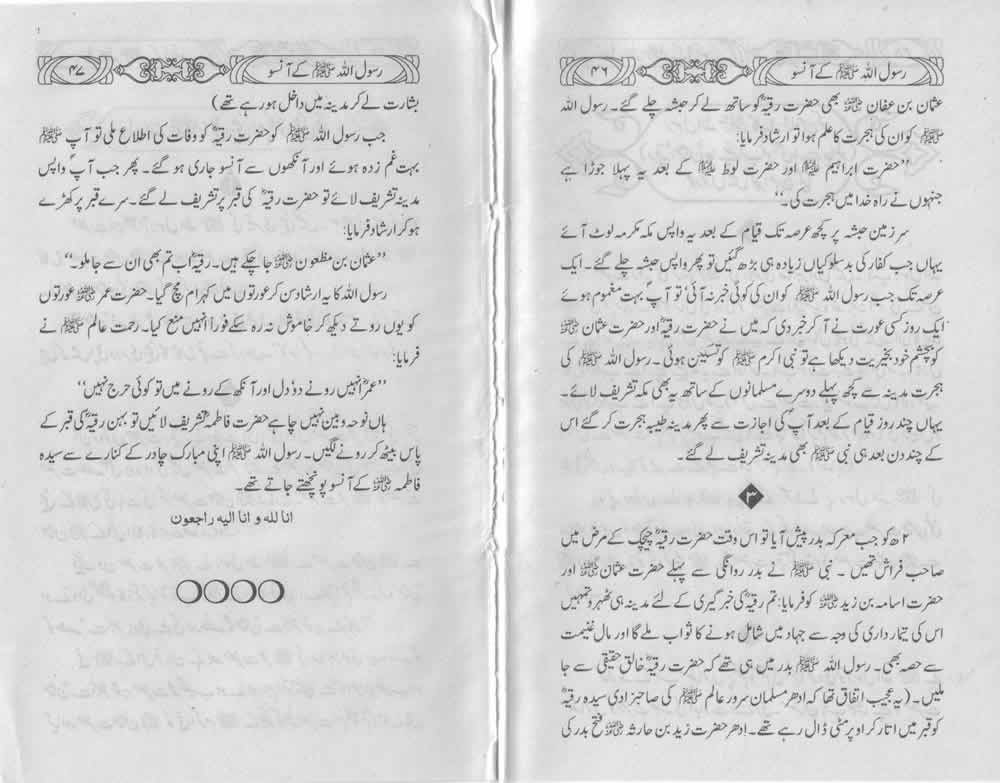 رسول اللہ ﷺ کے آنسو
۴۶
عثمان بن عفان ؓ بھی حضرت رقیہؓ کو ساتھ لے کر حبشہ چلے گئے۔ رسول اللہ
ﷺ کو ان کی ہجرت کا علم ہوا تو ارشاد فرمایا:
’’حضرت ابراہیم ؑ اور حضرت لوط ؑ کے بعد یہ پہلا جوڑا ہے
جنہوں نے راہ خدا میں ہجرت کی۔‘‘
سرزمین حبشہ پر کچھ عرصہ تک قیام کے بعد یہ واپس مکہ مکرمہ لوٹ آئے
یہاں جب کفار کی بدسلوکیاں زیادہ ہی بڑھ گئیں تو پھر واپس حبشہ چلے گئے۔ ایک
عرصہ تک جب رسول اللہ ﷺ کو ان کی کوئی خبر نہ آئی‘ تو آپؐ بہت مغموم ہوئے
ایک روز کسی عورت نے آ کر خبر دی کہ میں نے حضرت رقیہؓ اور حضرت عثمان ؓ
کو بچشم خود بخیریت دیکھا ہے تو نبی اکرم ﷺ کو تسکین ہوئی۔ رسول اللہ ﷺ کی
ہجرت مدینہ سے کچھ پہلے دوسرے مسلمانوں کے ساتھ یہ بھی مکہ تشریف لائے۔
یہاں چند روز قیام کے بعد آپؐ کی اجازت سے پھر مدینہ طیبہ ہجرت کر گئے اس
کے چند دن بعد ہی نبی ﷺ بھی مدینہ تشریف لے گئے۔
۳
۲ھ کو جب معرکہ بدر پیش آیا تو اس وقت حضرت رقیہؓ چیچک کے مرض میں
صاحب فراش تھیں۔ نبی ﷺ نے بدر روانگی سے پہلے حضرت عثمان ؓ اور
حضرت اسامہ بن زید ؓ کو فرمایا: تم رقیہؓ کی خبر گیری کے لئے مدینہ ہی ٹھہرو تمہیں
اس کی تیمار داری کی وجہ سے جہاد میں شامل ہونے کا ثواب ملے گا اور مال غنیمت
سے حصہ بھی۔ رسول اللہ ﷺ بدر میں ہی تھے کہ حضرت رقیہؓ خالق حقیقی سے جا
ملیں۔ (یہ عجیب اتفاق تھا کہ ادھر مسلمان سرور عالم ﷺ کی صاحبزادی سیدہ رقیہؓ
کو قبر میں اتار کر اوپر مٹی ڈال رہے تھے۔ ادھر حضرت زید بن حارثہ ؓ فتح بدر کی
رسول اللہ ﷺ کے آنسو
۴۷
بشارت لے کر مدینہ میں داخل ہو رہے تھے)
جب رسول اللہ ﷺ کو حضرت رقیہؓ کو وفات کی اطلاع ملی تو آپ ﷺ
بہت غم زدہ ہوئے اور آنکھوں سے آنسو جاری ہو گئے۔ پھر جب آپؐ واپس
مدینہ تشریف لائے تو حضرت رقیہؓ کی قبر پر تشریف لے گئے۔ سرے قبر پر کھڑے
ہو کر ارشاد فرمایا:
’’عثمان بن مظعون ؓ جا چکے ہیں۔ رقیہؓ اب تم بھی ان سے جا ملو۔‘‘
رسول اللہ کا یہ ارشاد سن کر عورتوں میں کہرام مچ گیا۔ حضرت عمر ؓ عورتوں
کو یوں روتے دیکھ کر خاموش نہ رہ سکے فوراً انہیں منع کیا۔ رحمت عالم ﷺ نے
فرمایا:
’’عمرؓ انہیں رونے دو‘ دل اور آنکھ کے رونے میں تو کوئی حرج نہیں‘‘
ہاں نوحہ و بین نہیں چاہے حضرت فاطمہؓ تشریف لائیں تو بہن رقیہؓ کی قبر کے
پاس بیٹھ کر رونے لگیں۔ رسول اللہ ﷺ اپنی مبارک چادر کے کنارے سے سیدہ
فاطمہ ؓ کے آنسو پونچھتے جاتے تھے۔
انا للہ و انا الیہ راجعون